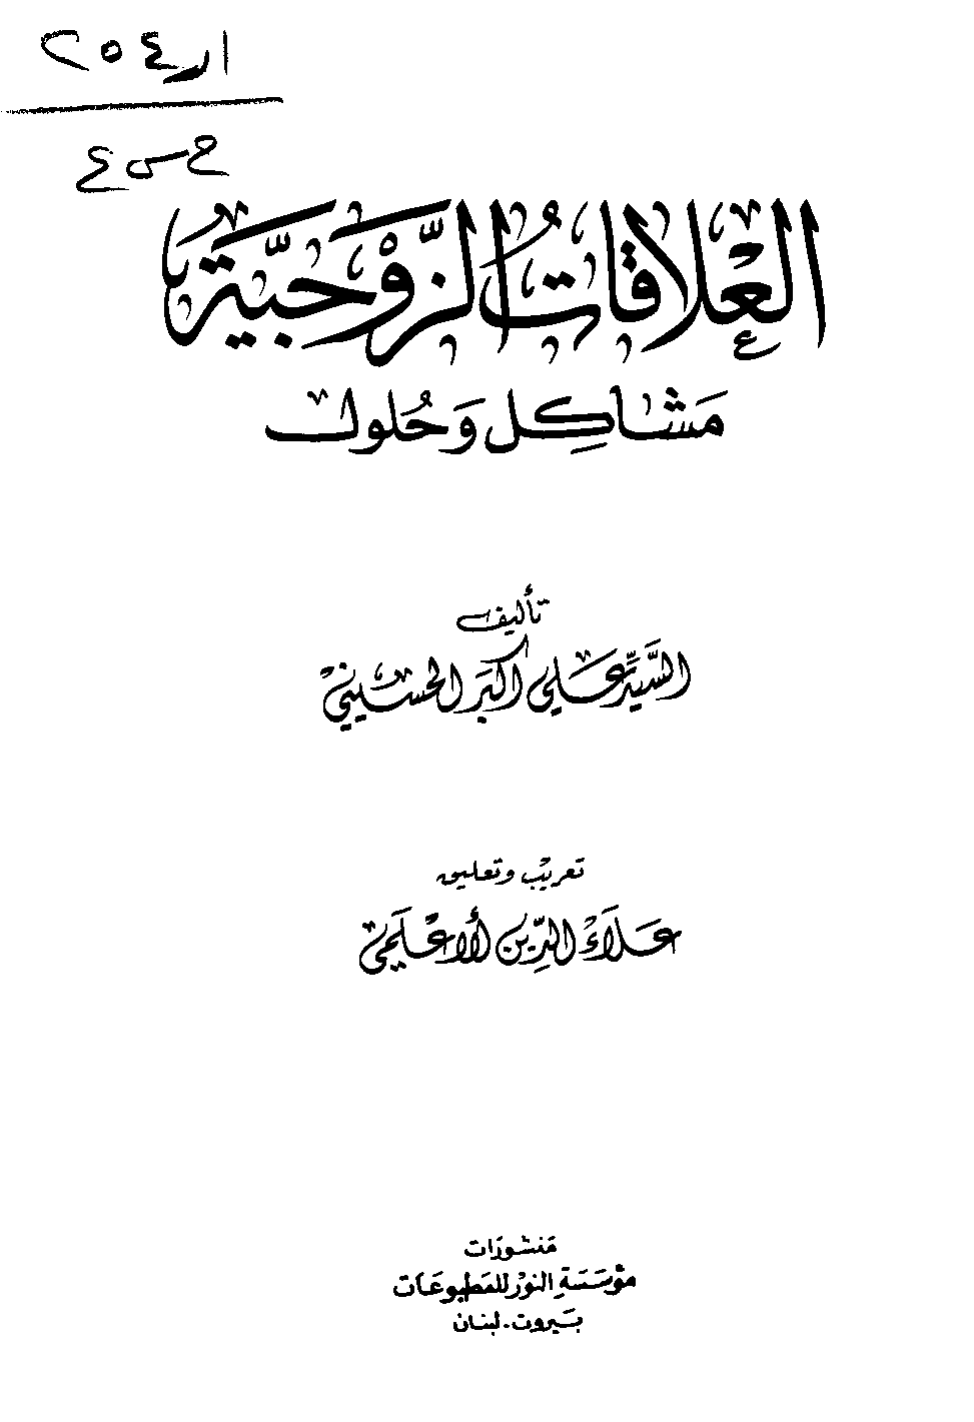 العِلاقاتُ الزَّوْجِيَّة
مَشاكِل وَحُلول
تأليف
السَّيِّد عَلي أكبَر الحسَيني
تعريب وتعليق
عَلاءُ الدِّين الأعْلَمي
مَنشورَات
مؤسَسَة النورْ للمَطبوعَات
بَيروت - لبنان